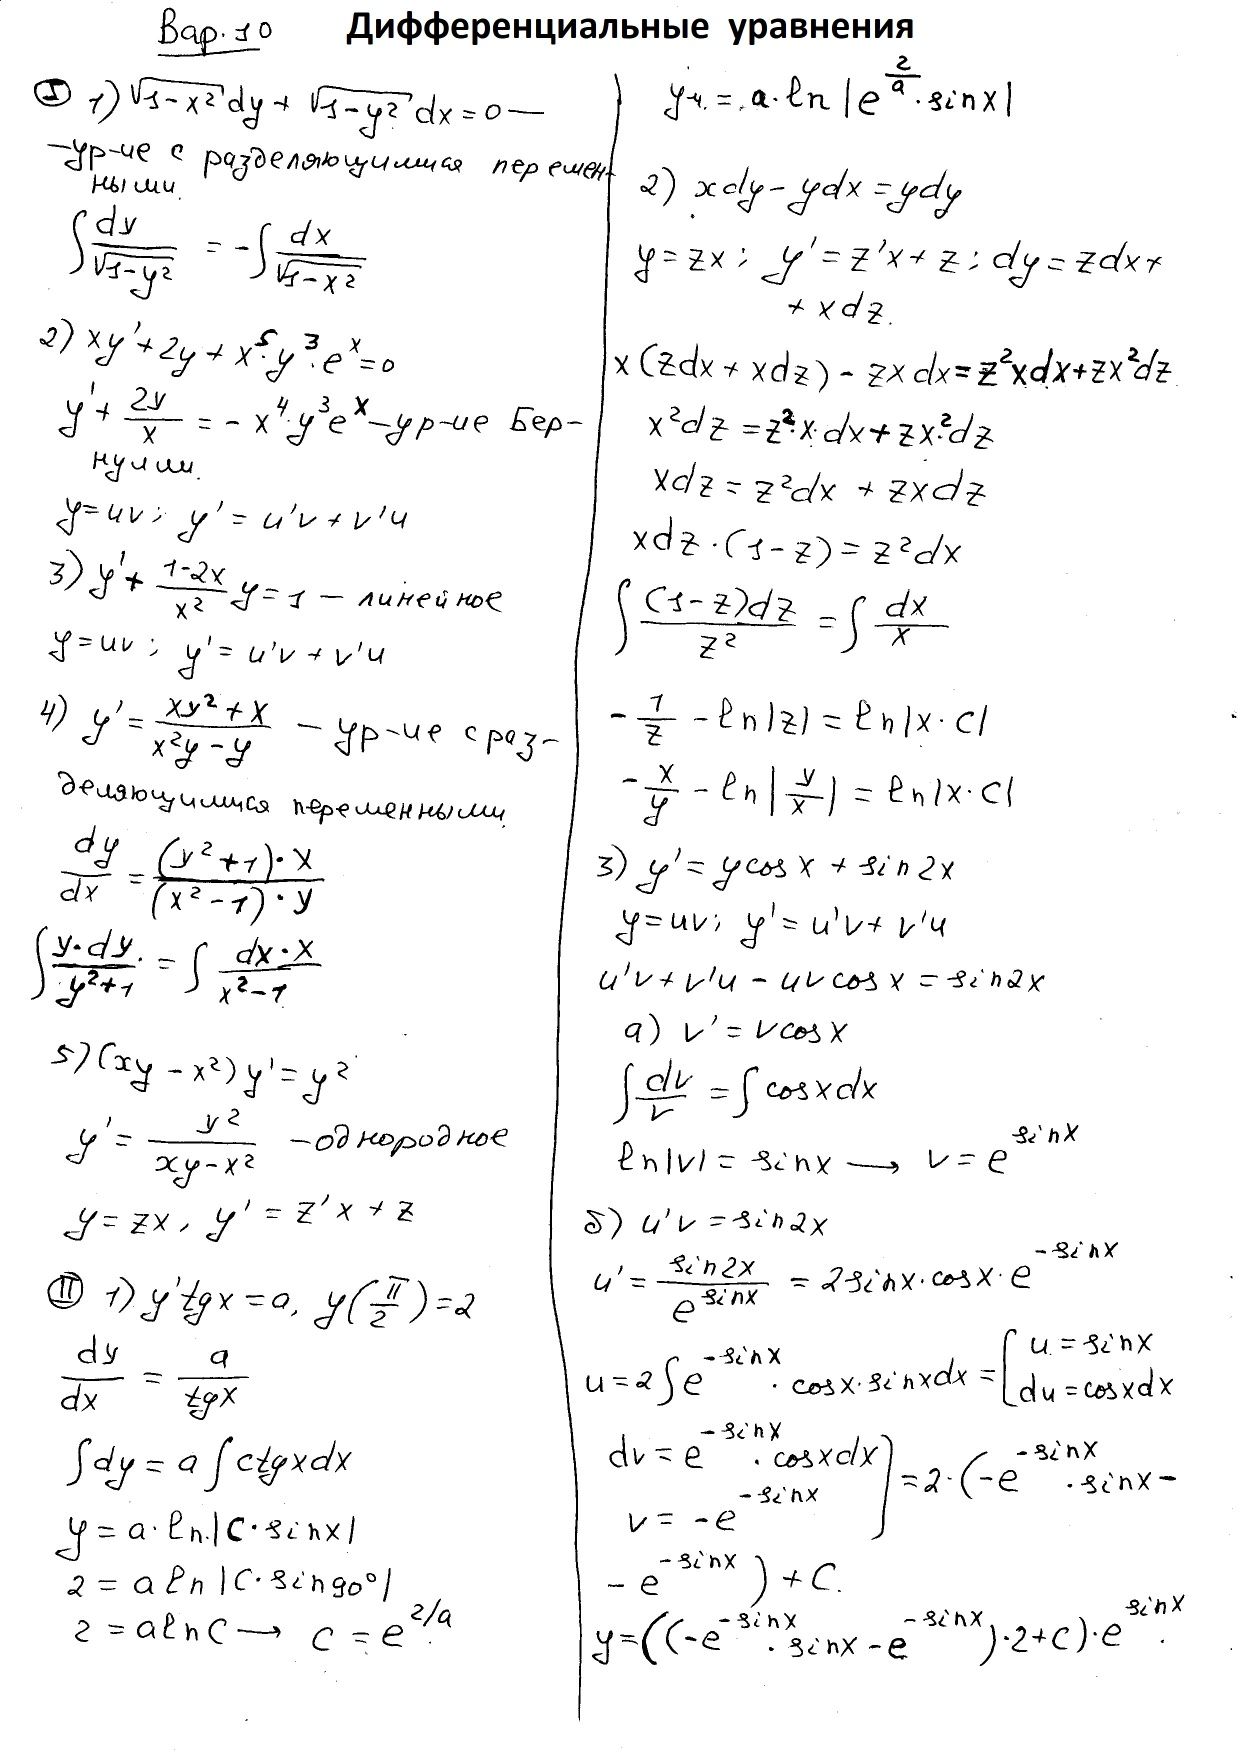 Вар. 10 Дифференциальные уравнения
I 1) √(1-x²) dy + √(1-y²) dx = 0 —
— ур-ие с разделяющимися перемен-
ными.
∫ dy/√(1-y²) = -∫ dx/√(1-x²)
2) xy' + 2y + x⁵·y³·eˣ = 0
y' + 2y/x = -x⁴·y³eˣ — ур-ие Бер-
нулли.
y = uv; y' = u'v + v'u
3) y' + (1-2x)/x² y = 1 — линейное
y = uv; y' = u'v + v'u
4) y' = (xy² + x)/(x²y - y) — ур-ие с раз-
деляющимися переменными.
dy/dx = ((y²+1)·x)/((x²-1)·y)
∫ y·dy/(y²+1) = ∫ dx·x/(x²-1)
5) (xy - x²)y' = y²
y' = y²/(xy - x²) — однородное
y = zx, y' = z'x + z
II 1) y'tgx = a, y(π/2) = 2
dy/dx = a/tgx
∫dy = a∫ctgxdx
y = a·ln|C·sinx|
2 = a ln|C·sin90°|
2 = a ln C → C = e^(2/a).
yч. = a·ln|e^(2/a)·sinx|
2) xdy - ydx = ydy
y = zx; y' = z'x + z; dy = zdx +
+ xdz.
x(zdx + xdz) - zxdx = z²xdx + zx²dz
x²dz = z²·x·dx + zx²dz
xdz = z²dx + zxdz
xdz·(1-z) = z²dx
∫ (1-z)dz/z² = ∫ dx/x
-1/z - ln|z| = ln|x·C|
-x/y - ln|y/x| = ln|x·C|
3) y' = ycosx + sin2x
y = uv; y' = u'v + v'u
u'v + v'u - uvcosx = sin2x
а) v' = vcosx
∫ dv/v = ∫cosxdx
ln|v| = sinx → v = e^(sinx)
б) u'v = sin2x
u' = sin2x/e^(sinx) = 2sinx·cosx·e^(-sinx)
u = 2∫e^(-sinx)·cosx·sinxdx = [u = sinx
du = cosxdx
dv = e^(-sinx)·cosxdx
v = -e^(-sinx)] = 2·(-e^(-sinx)·sinx -
- e^(-sinx)) + C.
y = ((-e^(-sinx)·sinx - e^(-sinx))·2 + C)·e^(sinx).